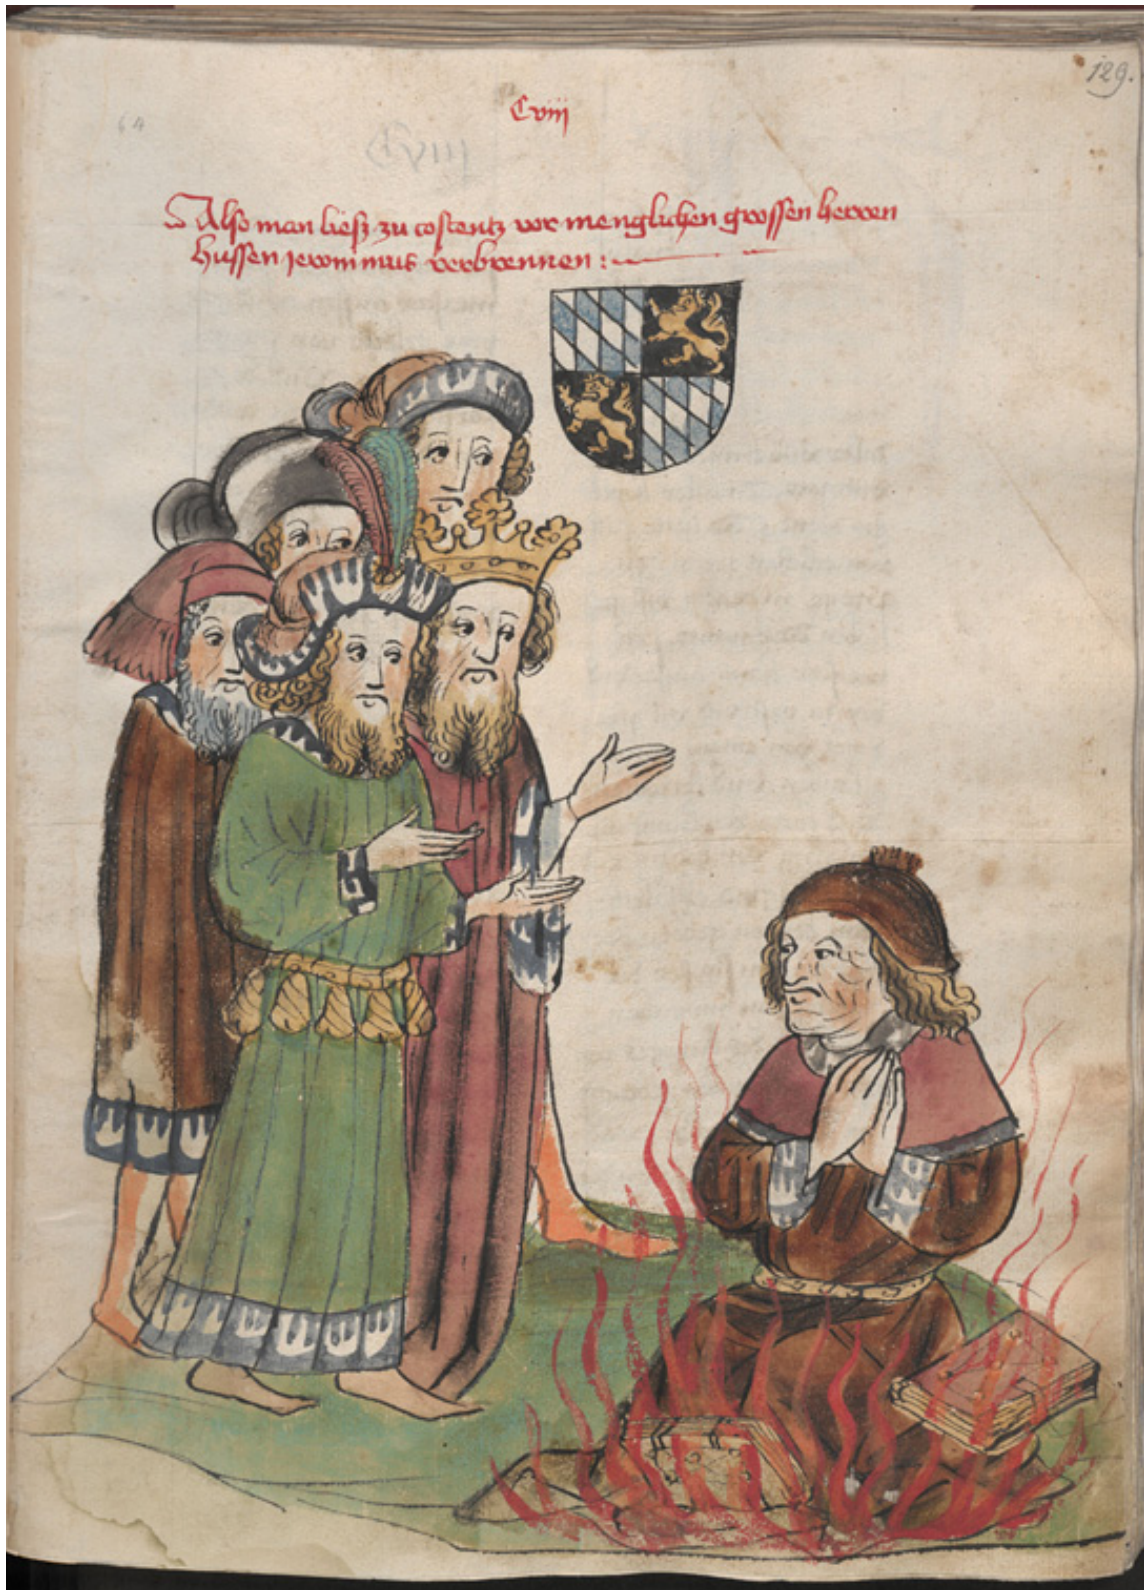 129.
Cviii
64
Also man ließ zu costentz vor menglichen grossen herren
Hussen Jeronimus verbrennen :